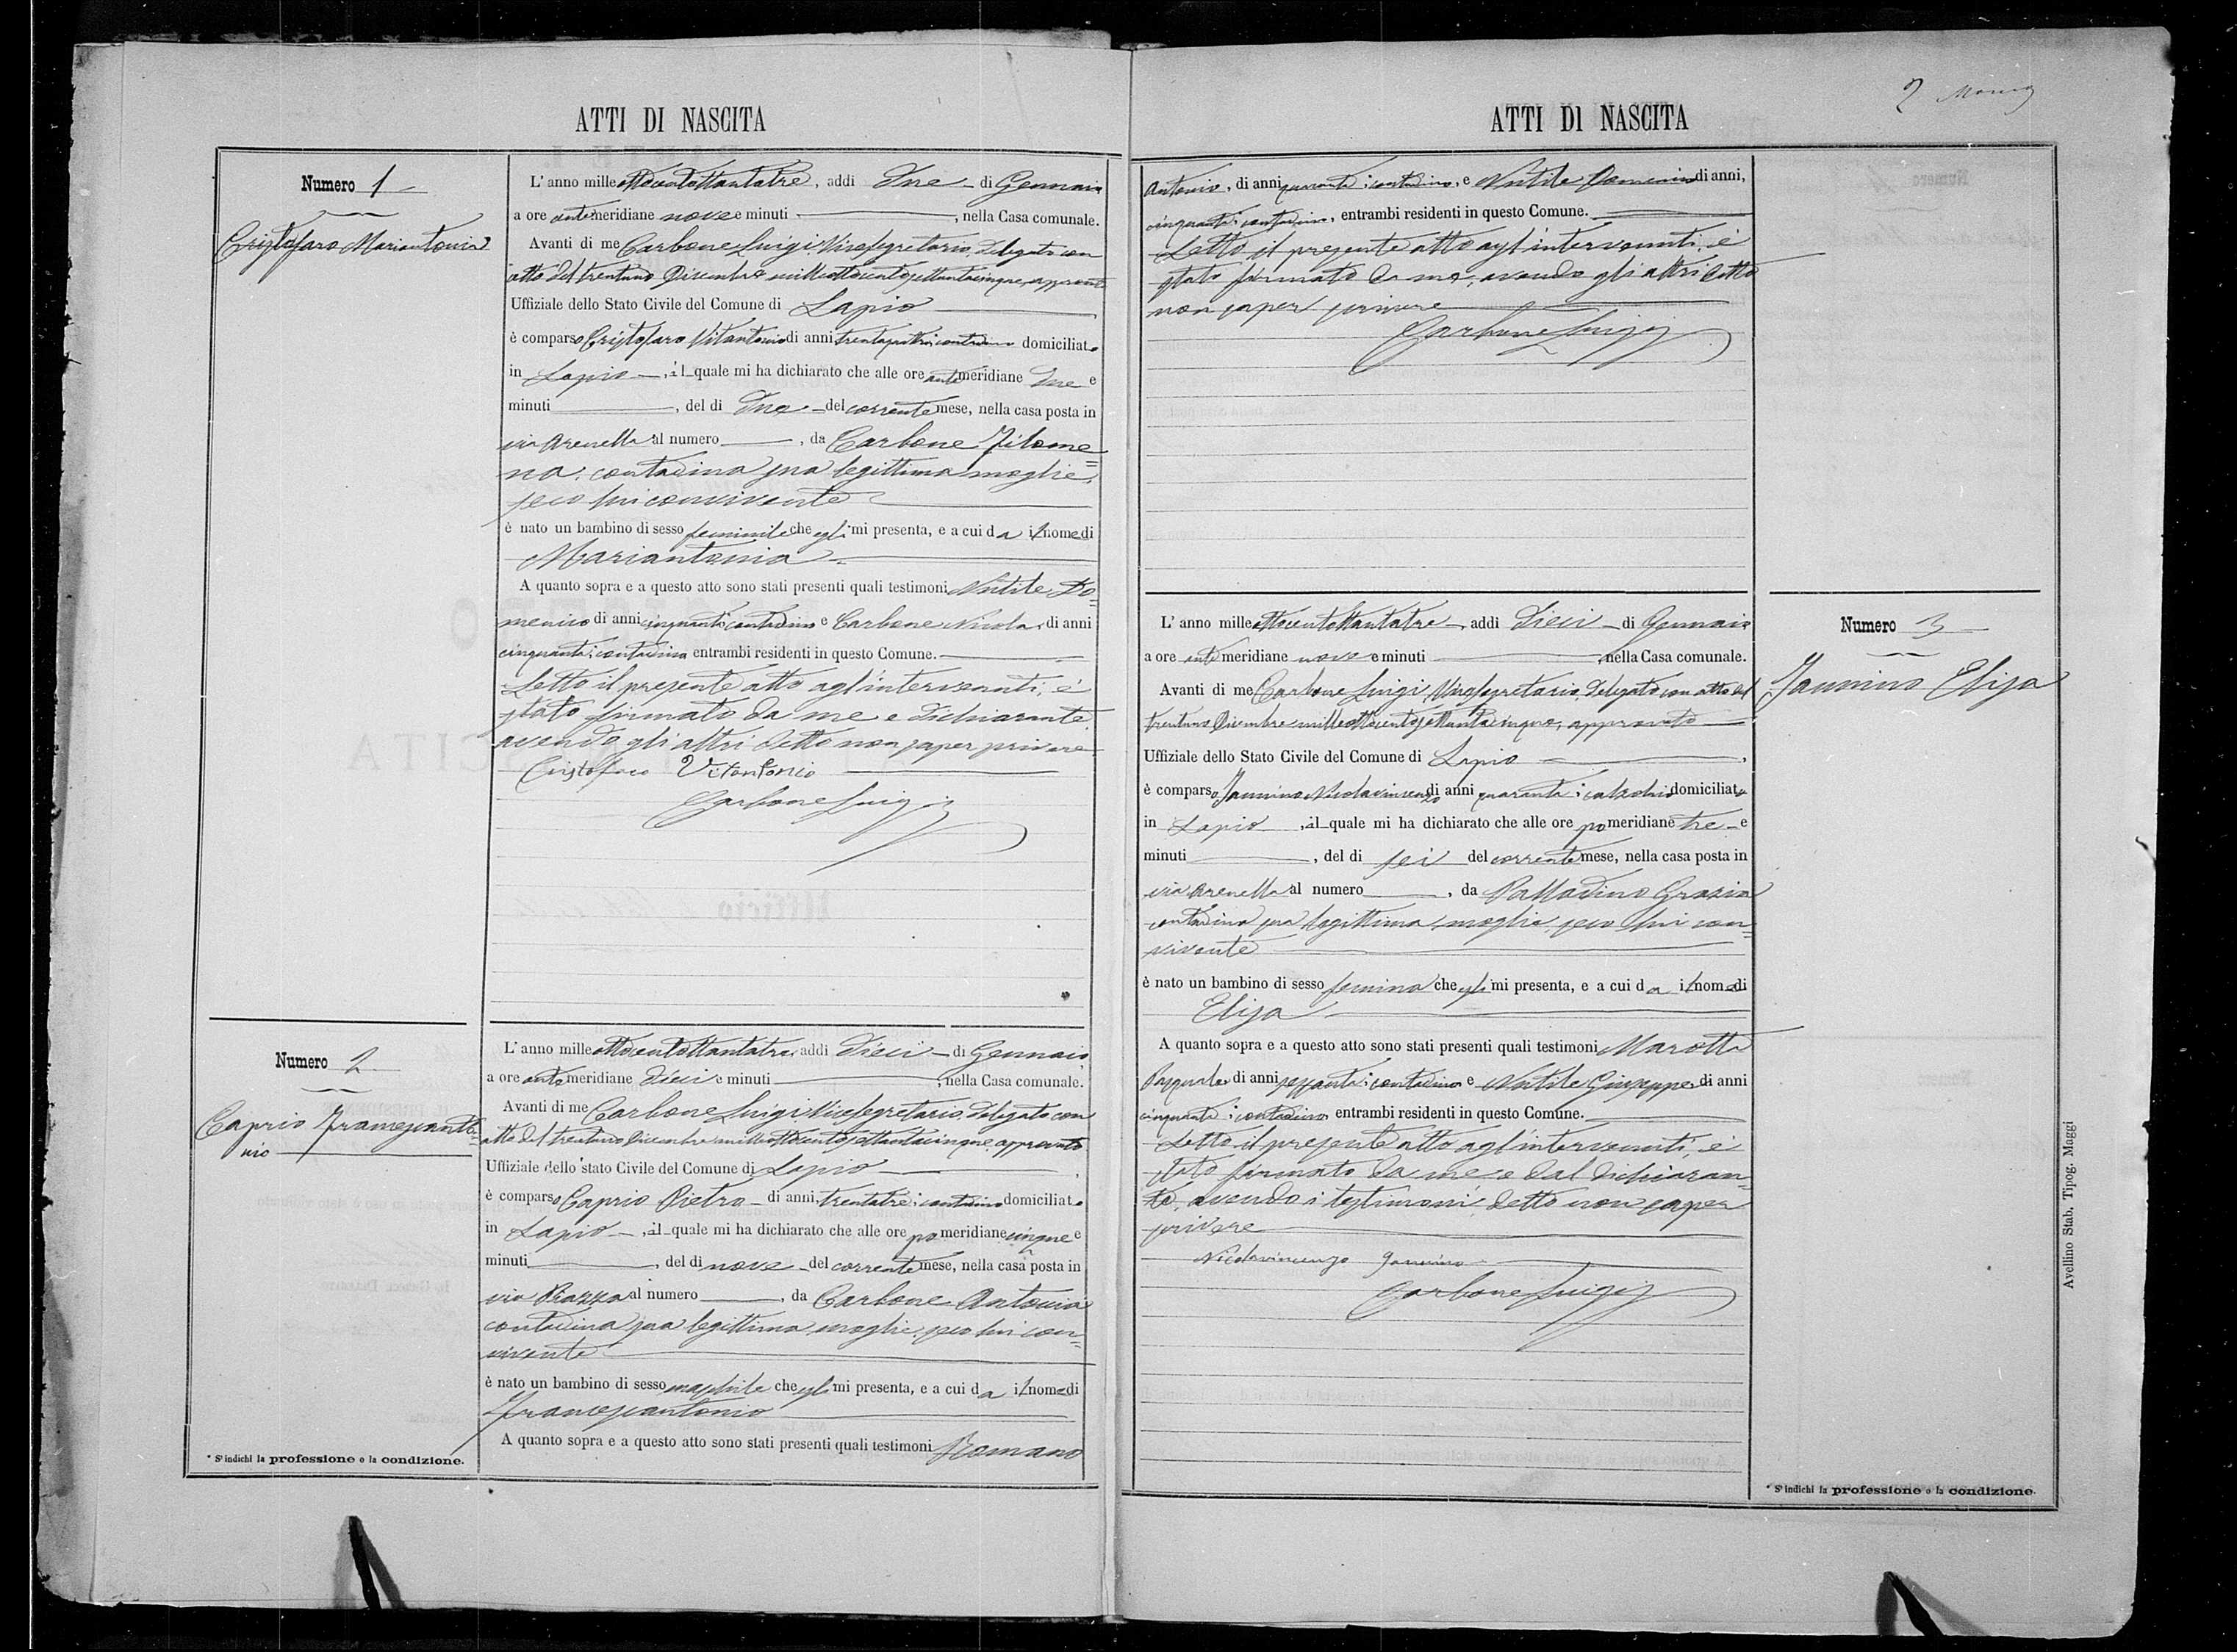 ATTI DI NASCITA
Numero 1
Cristofaro Mariantonia
L'anno milleottocentottantatre, addi due di Gennaio
a ore antemeridiane nove e minuti , nella Casa comunale.
Avanti di me Carbone Luigi Vicesegretario, delegato con
atto del trentuno Dicembre milleottocentosettantacinque, approvato
Uffiziale dello Stato Civile del Comune di Lapio
è comparso Cristofaro Vitantonio di anni trentaquattro, contadino domiciliato
in Lapio , il quale mi ha dichiarato che alle ore antemeridiane due e
minuti , del di due del corrente mese, nella casa posta in
via Arenella al numero , da Carbone Filome=
na, contadina sua legittima moglie,
seco lui convivente
è nato un bambino di sesso feminile che egli mi presenta, e a cui da il nome di
Mariantonia
A quanto sopra e a questo atto sono stati presenti quali testimoni Nutile Do=
menico di anni cinquanta contadino e Carbone Nicola, di anni
cinquanta, contadino entrambi residenti in questo Comune.
Letto il presente atto agl'intervenuti, è
stato firmato da me e dichiarante
avendo gli altri detto non saper scrivere
Cristofaro Vitantonio
Carbone Luigi
Numero 2
Caprio Francescanto=
nio
L'anno milleottocentottantatre, addi dieci di Gennaio
a ore antemeridiane dieci e minuti , nella Casa comunale.
Avanti di me Carbone Luigi Vicesegretario, delegato con
atto del trentuno Dicembre milleottocentosettantacinque, approvato
Uffiziale dello stato Civile del Comune di Lapio
è comparso Caprio Pietro di anni, trentatre, contadino domiciliato
in Lapio , il quale mi ha dichiarato che alle ore pomeridiane cinque e
minuti , del di nove del corrente mese, nella casa posta in
via Piazza al numero , da Carbone Antonia
contadina sua legittima moglie, seco lui con=
vivente
è nato un bambino di sesso maschile che egli mi presenta, e a cui da il nome di
Francescantonio
A quanto sopra e a questo atto sono stati presenti quali testimoni Romano
* S'indichi la professione o la condizione.
ATTI DI NASCITA
2
Antonio, di anni quaranta, contadino, e Nutile Domenico di anni,
cinquanta, contadino, entrambi residenti in questo Comune.
Letto il presente atto agl'intervenuti, è
stato firmato da me, avendo gli altri detto
non saper scrivere
Carbone Luigi
Numero 3
Jannino Elisa
L'anno milleottocentottantatre, addi dieci di Gennaio
a ore antemeridiane nove e minuti , nella Casa comunale.
Avanti di me Carbone Luigi, Vicesegretario, delegato con atto del
trentuno Dicembre milleottocentosettantacinque, approvato
Uffiziale dello Stato Civile del Comune di Lapio
è comparso Jannino Nicolavincenzo di anni quaranta, calzolaio domiciliato
in Lapio , il quale mi ha dichiarato che alle ore pomeridiane tre e
minuti , del di sei del corrente mese, nella casa posta in
via Arenella al numero , da Palladino Grazia
contadina sua legittima moglie, seco lui con=
vivente
è nato un bambino di sesso femina che egli mi presenta, e a cui da il nome di
Elisa
A quanto sopra e a questo atto sono stati presenti quali testimoni Marotta
Pasquale, di anni sessanta, contadino e Nutile Giuseppe, di anni
cinquanta, contadino, entrambi residenti in questo Comune.
Letto il presente atto agl'intervenuti, è
stato firmato da me e dal dichiaran=
te, avendo i testimoni detto non saper
scrivere
Nicolavincenzo Jannino
Carbone Luigi
* S'indichi la professione o la condizione.
Avellino Stab. Tipog. Maggi